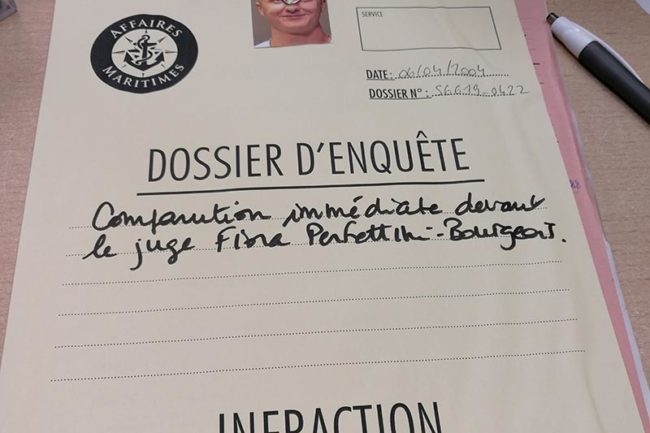 AFFAIRES MARITIMES
SERVICE
DATE : 06/04/2004
DOSSIER N° : SGG19_0422
DOSSIER D'ENQUÊTE
Comparution immédiate devant
le juge Fiora Perfettini-Bourgeois.
INFRACTION